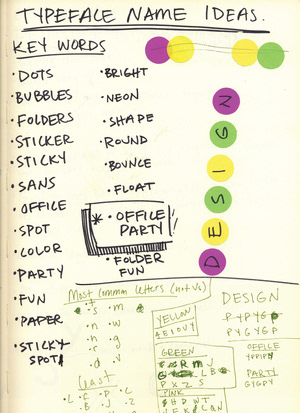 TYPEFACE NAME IDEAS.
KEY WORDS
• DOTS
• BUBBLES
• FOLDERS
• STICKER
• STICKY
• SANS
• OFFICE
• SPOT
• COLOR
• PARTY
• FUN
• PAPER
• STICKY
SPOT
• BRIGHT
• NEON
• SHAPE
• ROUND
• BOUNCE
• FLOAT
* • OFFICE
PARTY!
• FOLDER
FUN
DESIGN
Most Common letters (not vs)
t
s m
n w
h r g
d v
Least
YELLOW
AEIOUY
GREEN
PINK
DESIGN
PYPYGP
PYGYGP
OFFICE
PARTY
GYGPY